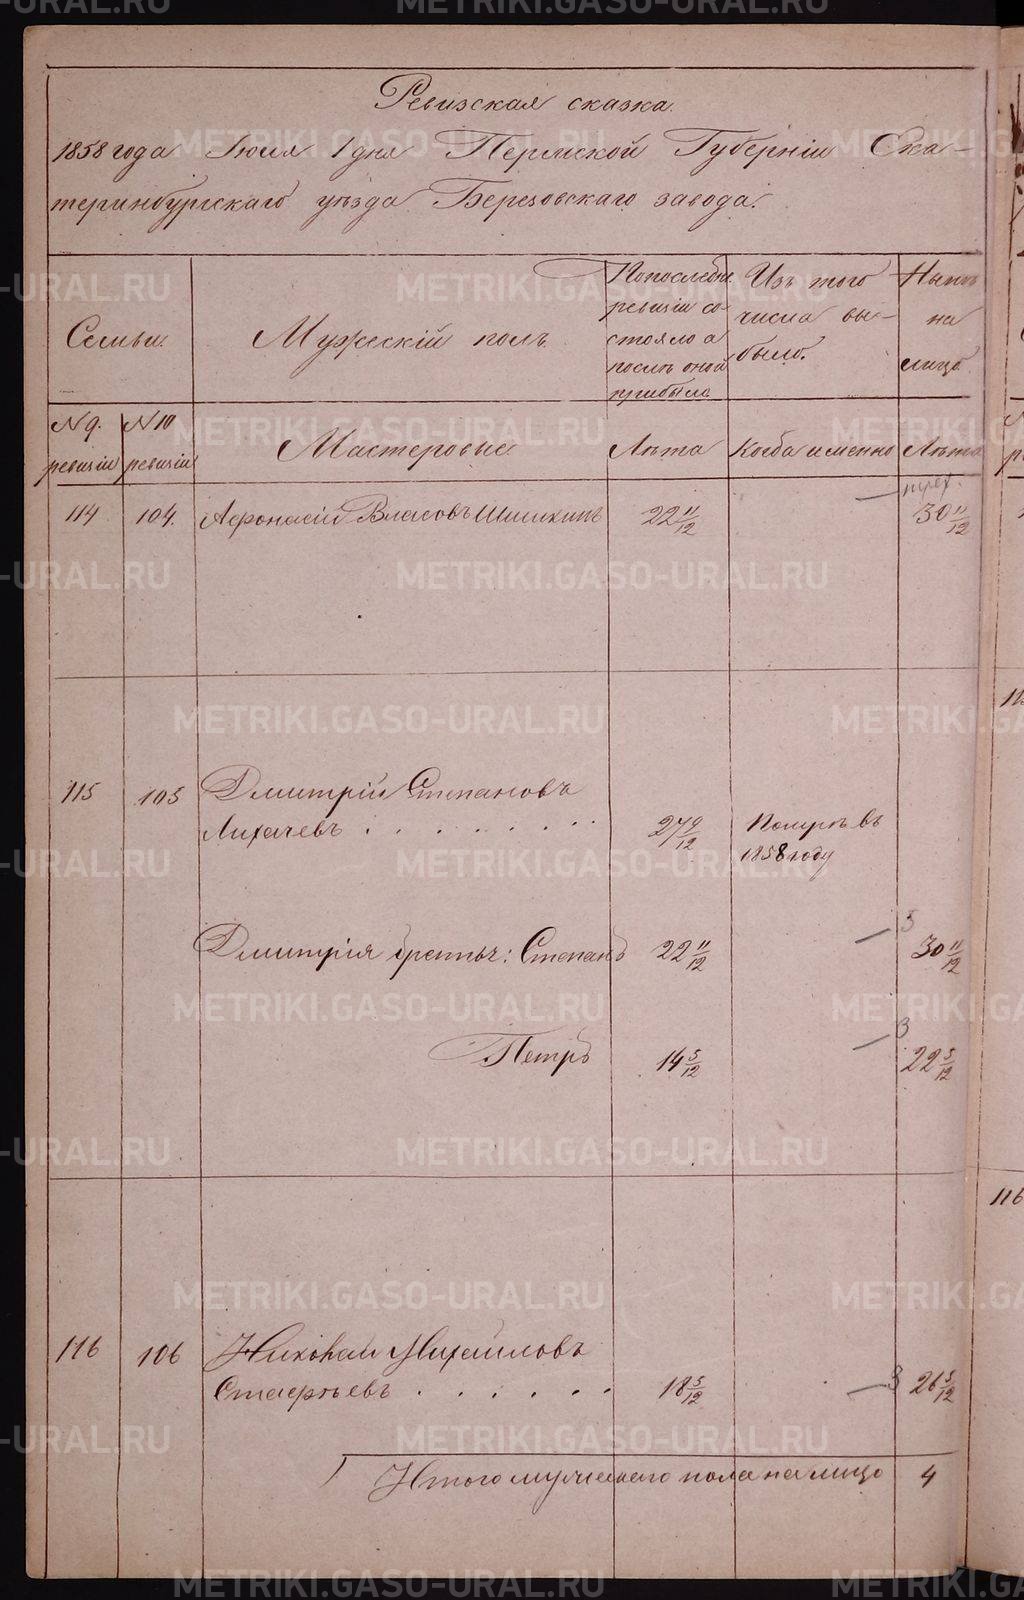 Ревизская сказка.
1858 года Июля 1 дня Пермской Губерніи Ека-
теринбургскаго уѣзда Березовскаго завода.
Семьи.
Мужескій полъ
По последн.
ревизіи со-
стояло а
послѣ оной
прибыло
Изъ того
числа вы-
было.
Нынѣ
на
лицо
№ 9.
ревизіи
№ 10
ревизіи
Мастеровые
Лѣта
Когда именно
Лѣта
114 104. Афонасій Власовъ Шишкинъ 22 11/12 30 11/12
115 105 Дмитрій Степановъ
Лихачевъ . . . . . . . . 27 9/12 Померъ въ
1858 году
Дмитрія братья: Степанъ 22 11/12 3 30 11/12
Петръ 14 5/12 3 22 5/12
116 106 Николай Михайловъ
. . . . . . 18 5/12 3 26 5/12
Итого мужескаго пола на лицо 4
115
116
METRIKI.GASO-URAL.RU